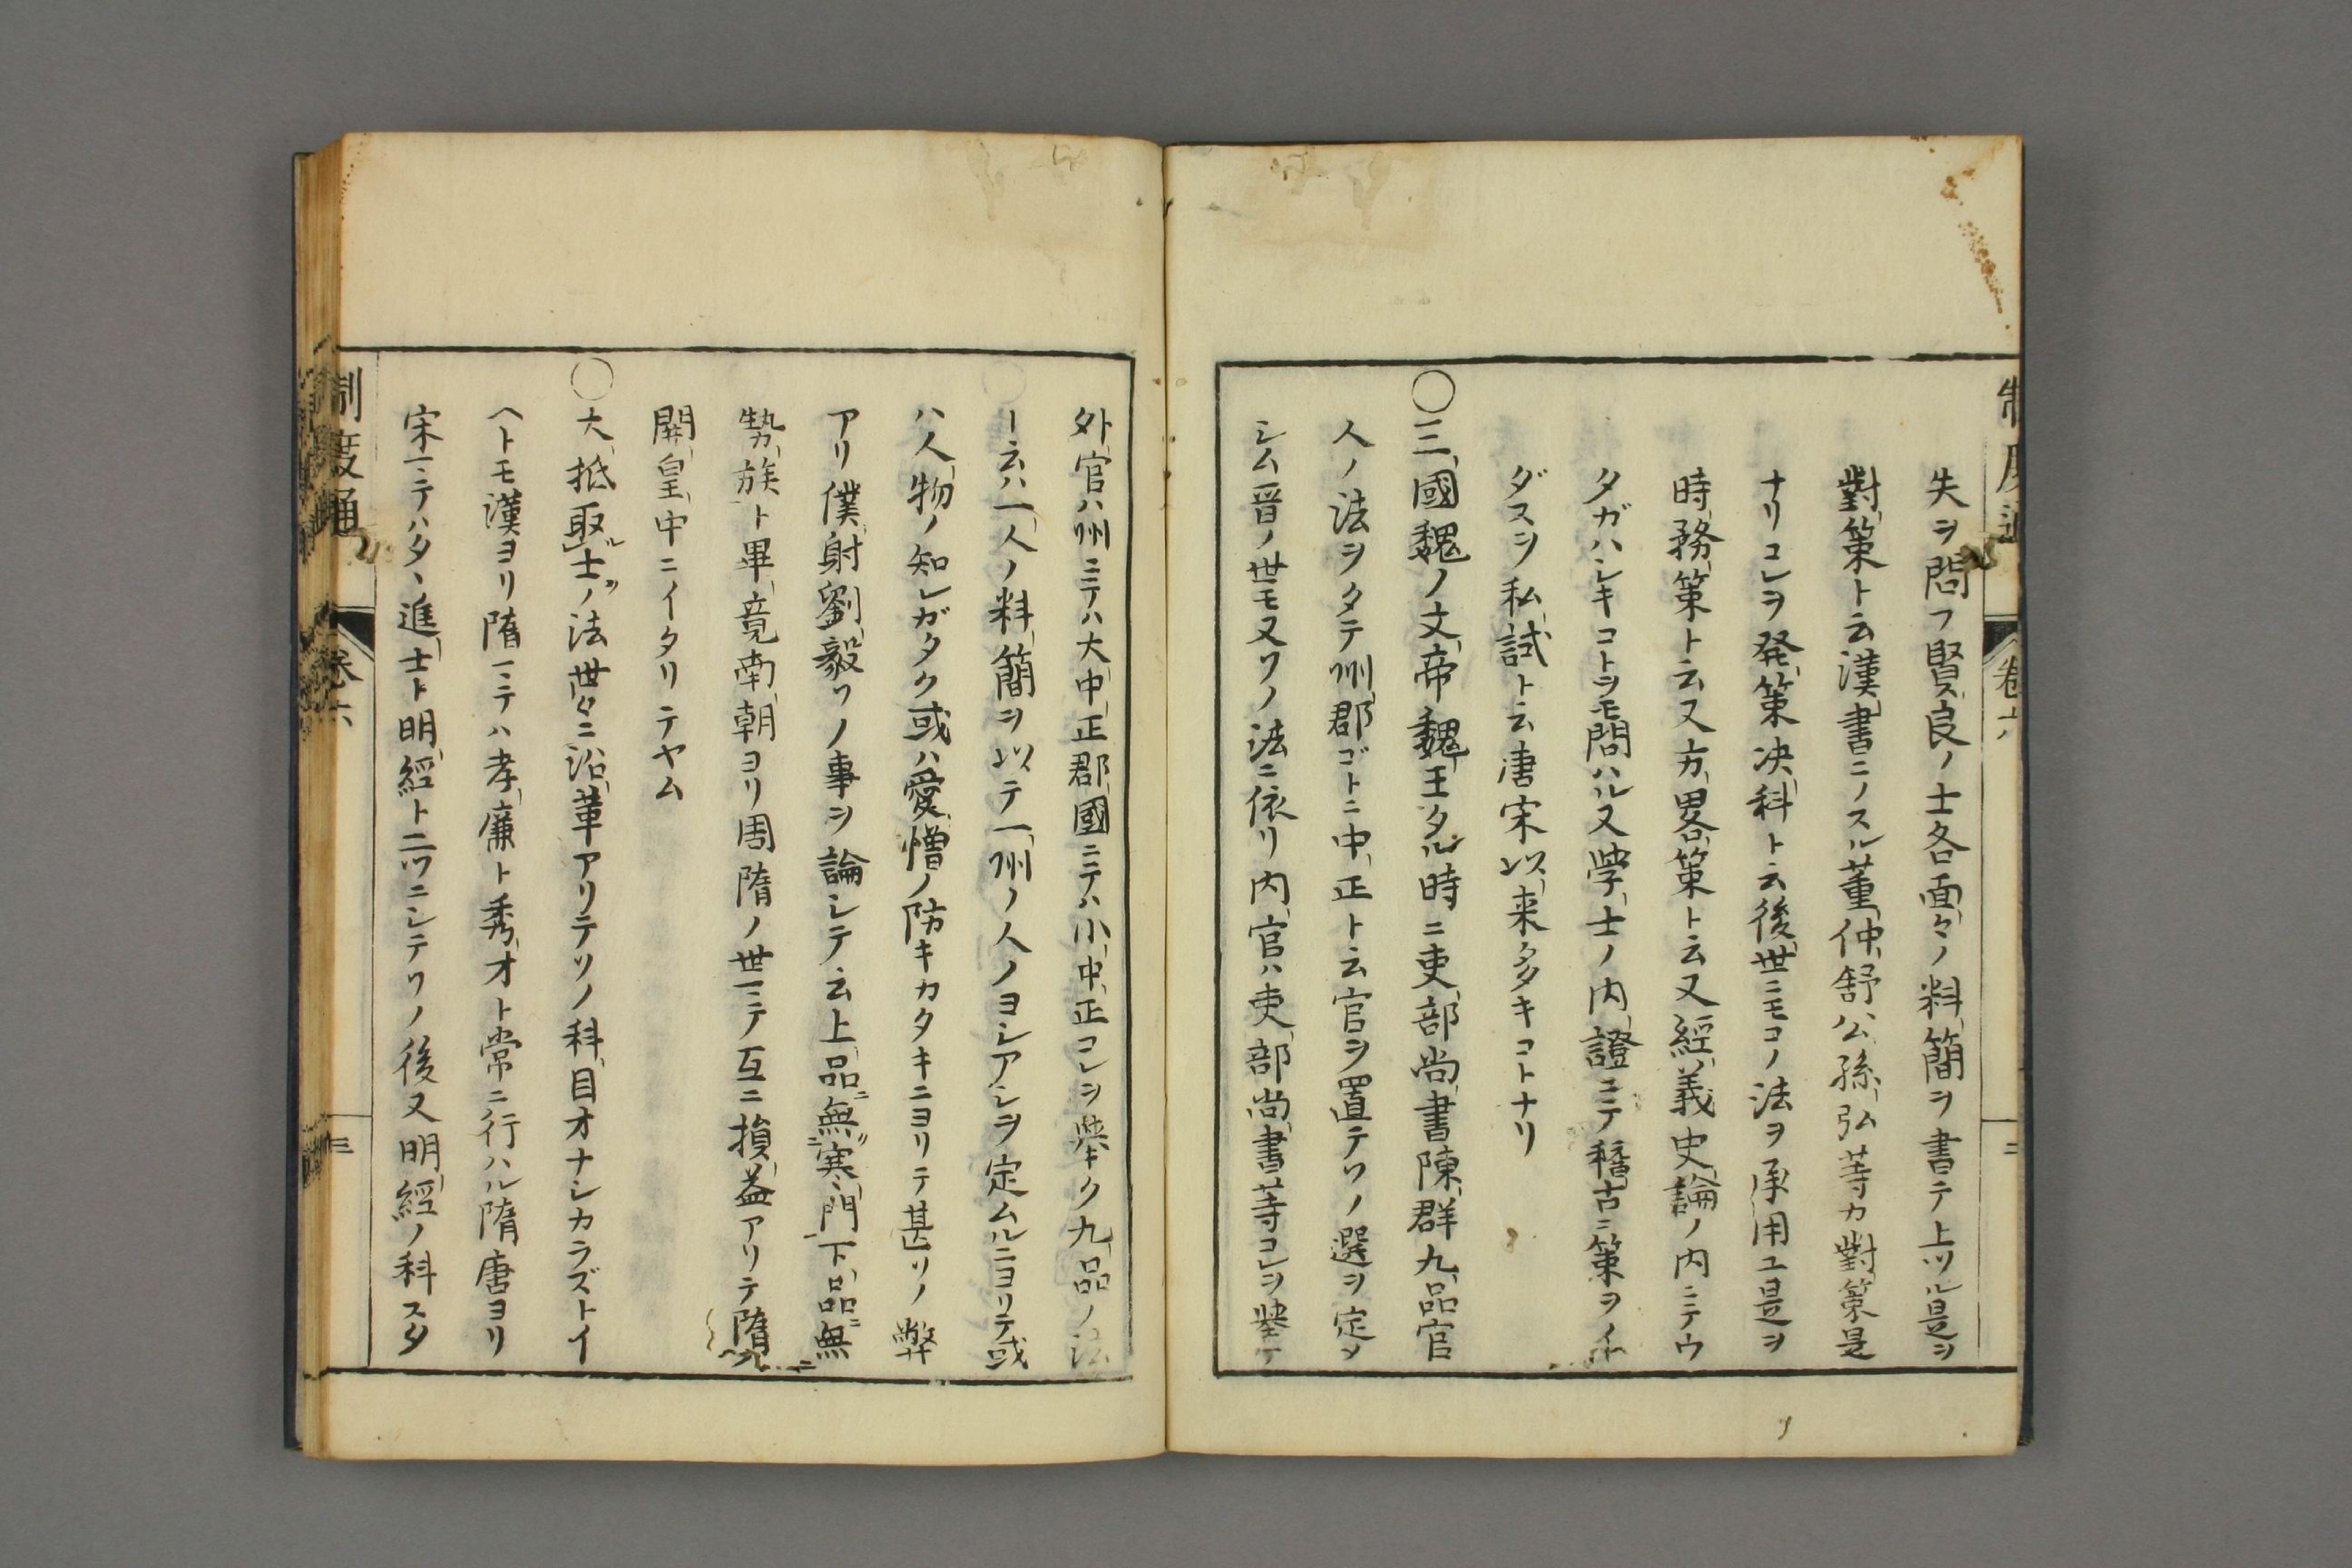 制度通 卷六 二
失ヲ問フ賢良ノ士各面々ノ料簡ヲ書テ上ツル是ヲ
對策ト云漢書ニノスル董仲舒公孫弘等カ對策是
ナリコレヲ発策决科ト云後世ニモコノ法ヲ承用ユ是ヲ
時務策ト云又方畧策ト云又經義史論ノ内ニテウ
タガハシキコトヲモ問ハル又学士ノ内證ニテ稽古ニ策ヲイ
ダスヲ私試ト云唐宋以来多キコトナリ
〇三國魏ノ文帝魏王タル時ニ吏部尚書陳群九品官
人ノ法ヲタテ州郡ゴトニ中正ト云官ヲ置テソノ選ヲ定メ
シム晋ノ世モ又ソノ法ニ依リ内官ハ吏部尚書等コレヲ挙ケ
外官ハ州ニテハ大中正郡國ニテハ小中正コレヲ挙ク九品ノ法
ト云ハ一人ノ料簡ヲ以テ一州ノ人ノヨシアシヲ定ムルニヨリテ或
ハ人物ノ知レガタク或ハ愛憎ノ防キカタキニヨリテ甚ソノ弊
アリ僕射劉毅ソノ事ヲ論シテ云上品ニ無寒門下品ニ無
勢族ト畢竟南朝ヨリ周隋ノ世ニテ互ニ損益アリテ隋
開皇中ニイタリテヤム
〇大抵取ル士ヲノ法世々ニ沿革アリテソノ科目オナシカラズトイ
ヘトモ漢ヨリ隋ニテハ孝廉ト秀才ト常ニ行ハル隋唐ヨリ
宋ニテハタヽ進士ト明經ト二ツニシテソノ後又明經ノ科スタ
制度通 卷六 三